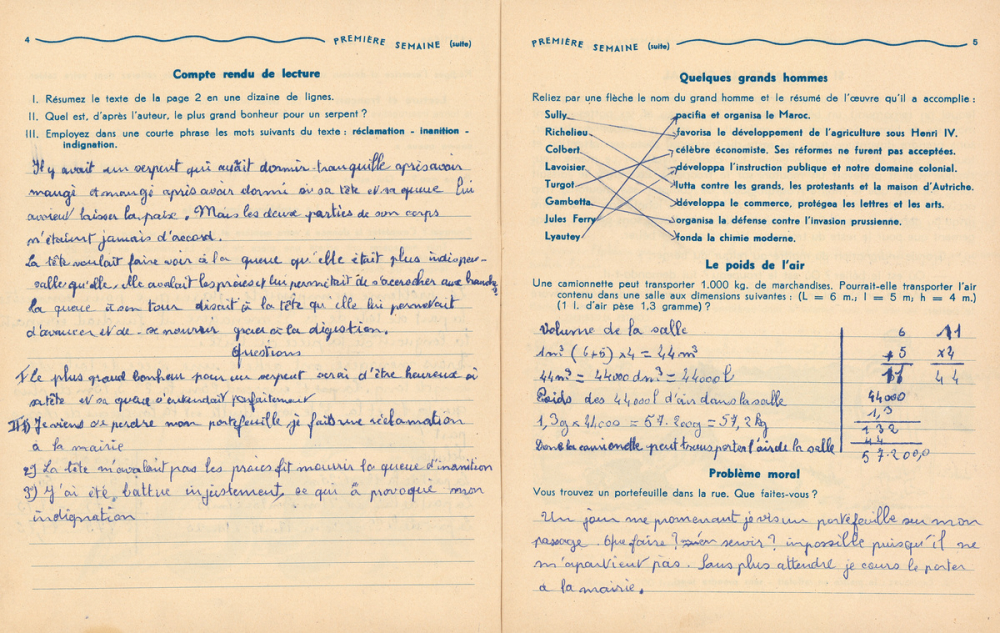 4 PREMIÈRE SEMAINE (suite)
Compte rendu de lecture
I. Résumez le texte de la page 2 en une dizaine de lignes.
II. Quel est, d'après l'auteur, le plus grand bonheur pour un serpent ?
III. Employez dans une courte phrase les mots suivants du texte : réclamation - inanition -
indignation.
Il y avait un serpent qui aurait dormir tranquille après avoir
mangé et mangé après avoir dormi si sa tête et sa queue lui
avaient laisser la paix. Mais les deux parties de son corps
n'étaient jamais d'accord.
La tête voulait faire voir à la queue qu'elle était plus indispen-
salle qu'elle, elle avalait les proies et lui permettait de s'accrocher aux branches
La queue à son tour disait à la tête qu'elle lui permettait
d'avancer et de se nourrir grace à la digestion.
Questions
I Le plus grand bonheur pour un serpent serai d'être heureux si
sa tête et sa queue s'entendait parfaitement
III 1) Je viens de perdre mon portefeuille je fait une réclamation
à la mairie
2) La tête n'avalant pas les proies fit mourir la queue d'inanition
3) J'ai été battue injustement, ce qui à provoqué mon
indignation
PREMIÈRE SEMAINE (suite) 5
Quelques grands hommes
Reliez par une flèche le nom du grand homme et le résumé de l'œuvre qu'il a accomplie :
Sully pacifia et organisa le Maroc.
Richelieu favorisa le développement de l'agriculture sous Henri IV.
Colbert célèbre économiste. Ses réformes ne furent pas acceptées.
Lavoisier développa l'instruction publique et notre domaine colonial.
Turgot lutta contre les grands, les protestants et la maison d'Autriche.
Gambetta développa le commerce, protégea les lettres et les arts.
Jules Ferry organisa la défense contre l'invasion prussienne.
Lyautey fonda la chimie moderne.
Le poids de l'air
Une camionnette peut transporter 1.000 kg. de marchandises. Pourrait-elle transporter l'air
contenu dans une salle aux dimensions suivantes : (L = 6 m., l = 5 m; h = 4 m.)
(1 l. d'air pèse 1,3 gramme) ?
Volume de la salle
1m³ (6+5) x4 = 44 m³
44m³ = 44000 dm³ = 44000 l
Poids des 44000 l d'air dans la salle
1,3g x 44000 = 57.200g = 57,2 kg
Donc la camionette peut transporter l'air de la salle
6 11
+5 x4
11 44
44000
1,3
132
44
57200,0
Problème moral
Vous trouvez un portefeuille dans la rue. Que faites-vous ?
Un jour me promenant je vis un portefeuille sur mon
passage. Que faire ? m'en servir ? impossible puisqu'il ne
m'apartient pas. Sans plus attendre je cours le porter
à la mairie.